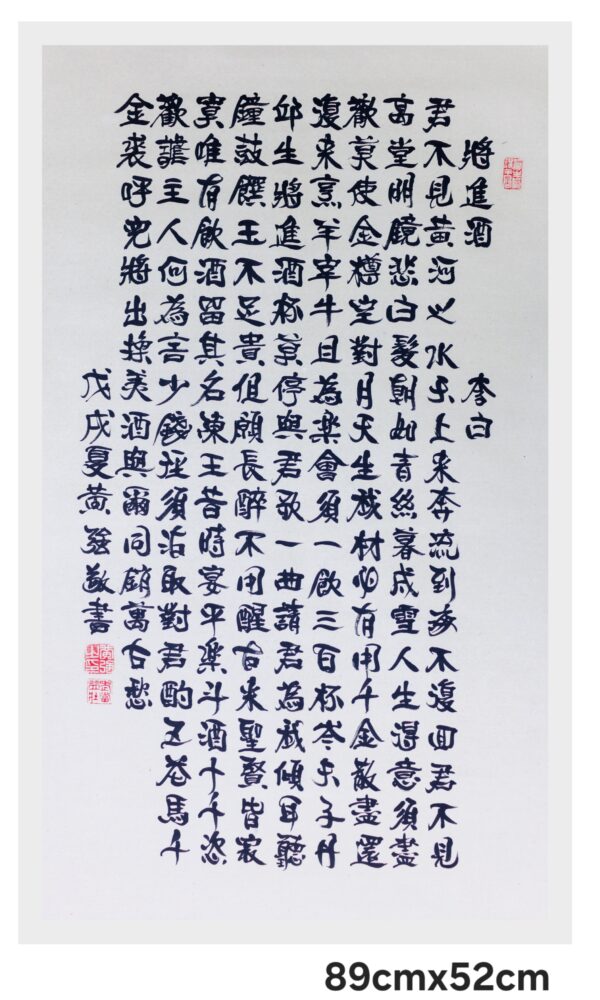 將進酒 李白
君不見黃河之水天上来奔流到海不復回君不見
高堂明鏡悲白髮朝如青絲暮成雪人生得意須盡
歡莫使金樽空對月天生我材必有用千金散盡還
復来烹羊宰牛且為樂會須一飲三百杯岑夫子丹
邱生將進酒杯莫停與君歌一曲請君為我傾耳聽
鐘鼓饌玉不足貴但願長醉不用醒古来聖賢皆寂
寞唯有飲酒留其名陳王昔時宴平樂斗酒十千恣
歡謔主人何為言少錢徑須沽取對君酌五花馬千
金裘呼兒將出換美酒與爾同銷萬古愁
戊戌夏黃强敬書
89cmx52cm